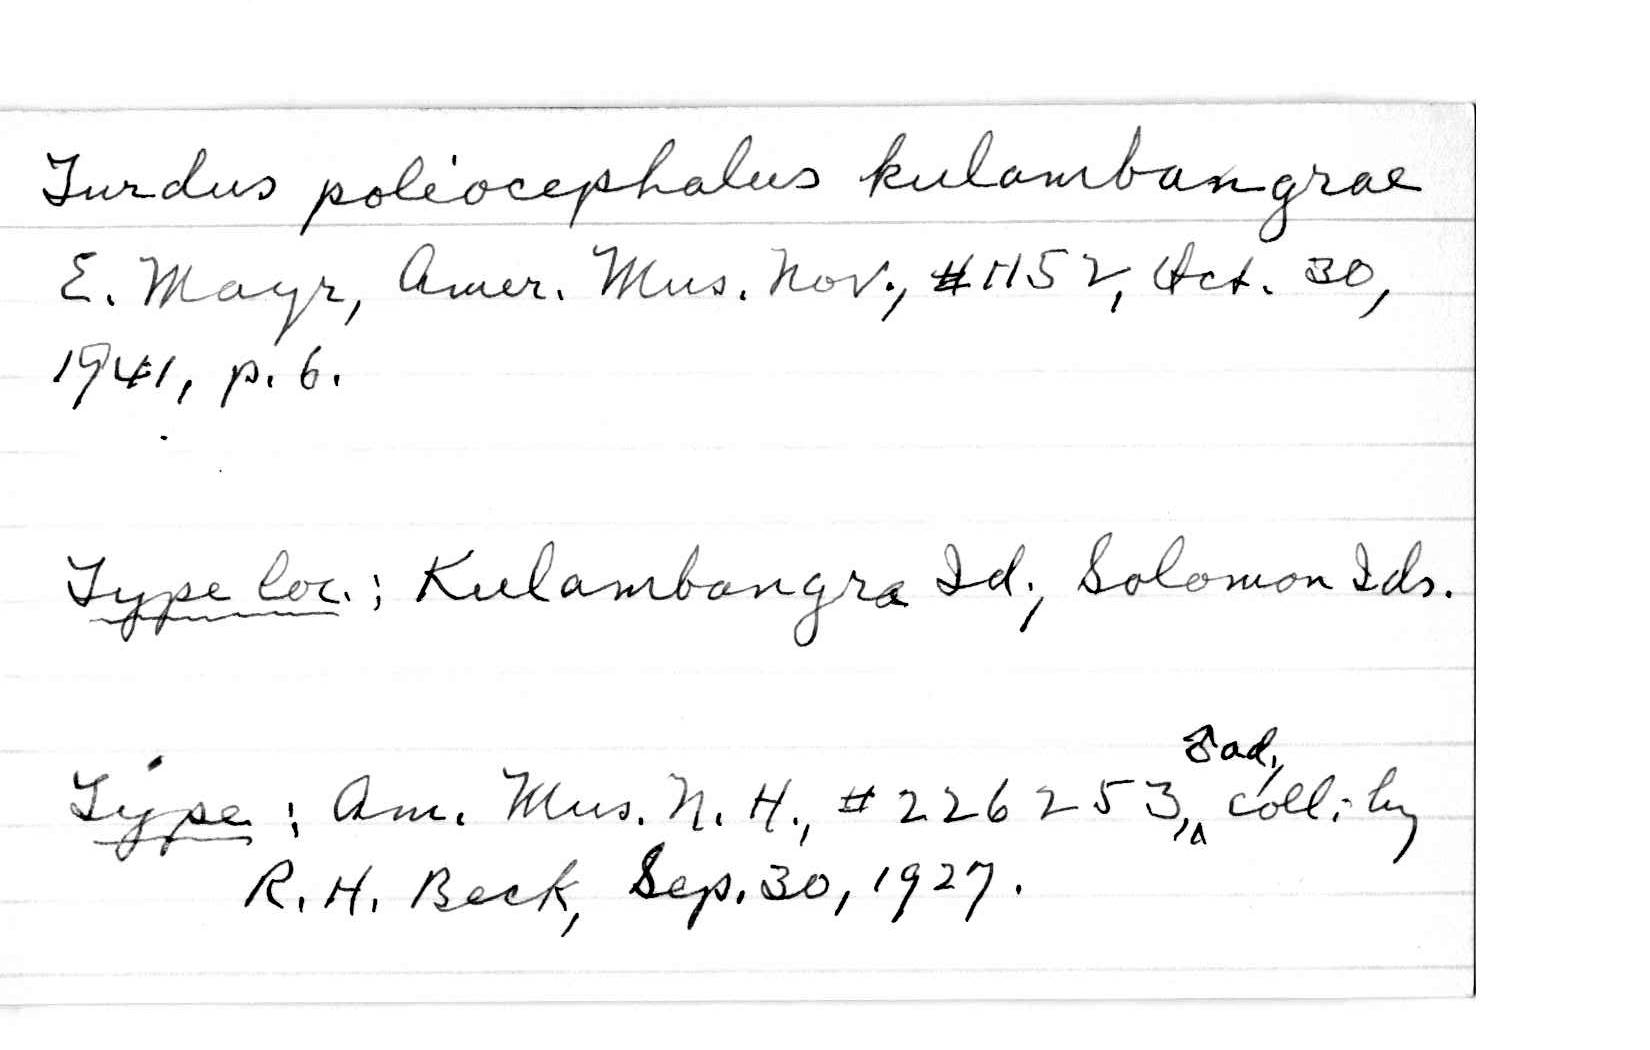 Turdus poliocephalus kulambangrae
E. Mayr, Amer. Mus. Nov., #1152, Oct. 30,
1941, p. 6.
Type loc.: Kulambangra Id., Solomon Ids.
♂ ad.,
Type: Am. Mus. N. H., #226253, ^ coll. by
R. H. Beck, Sep. 30, 1927.